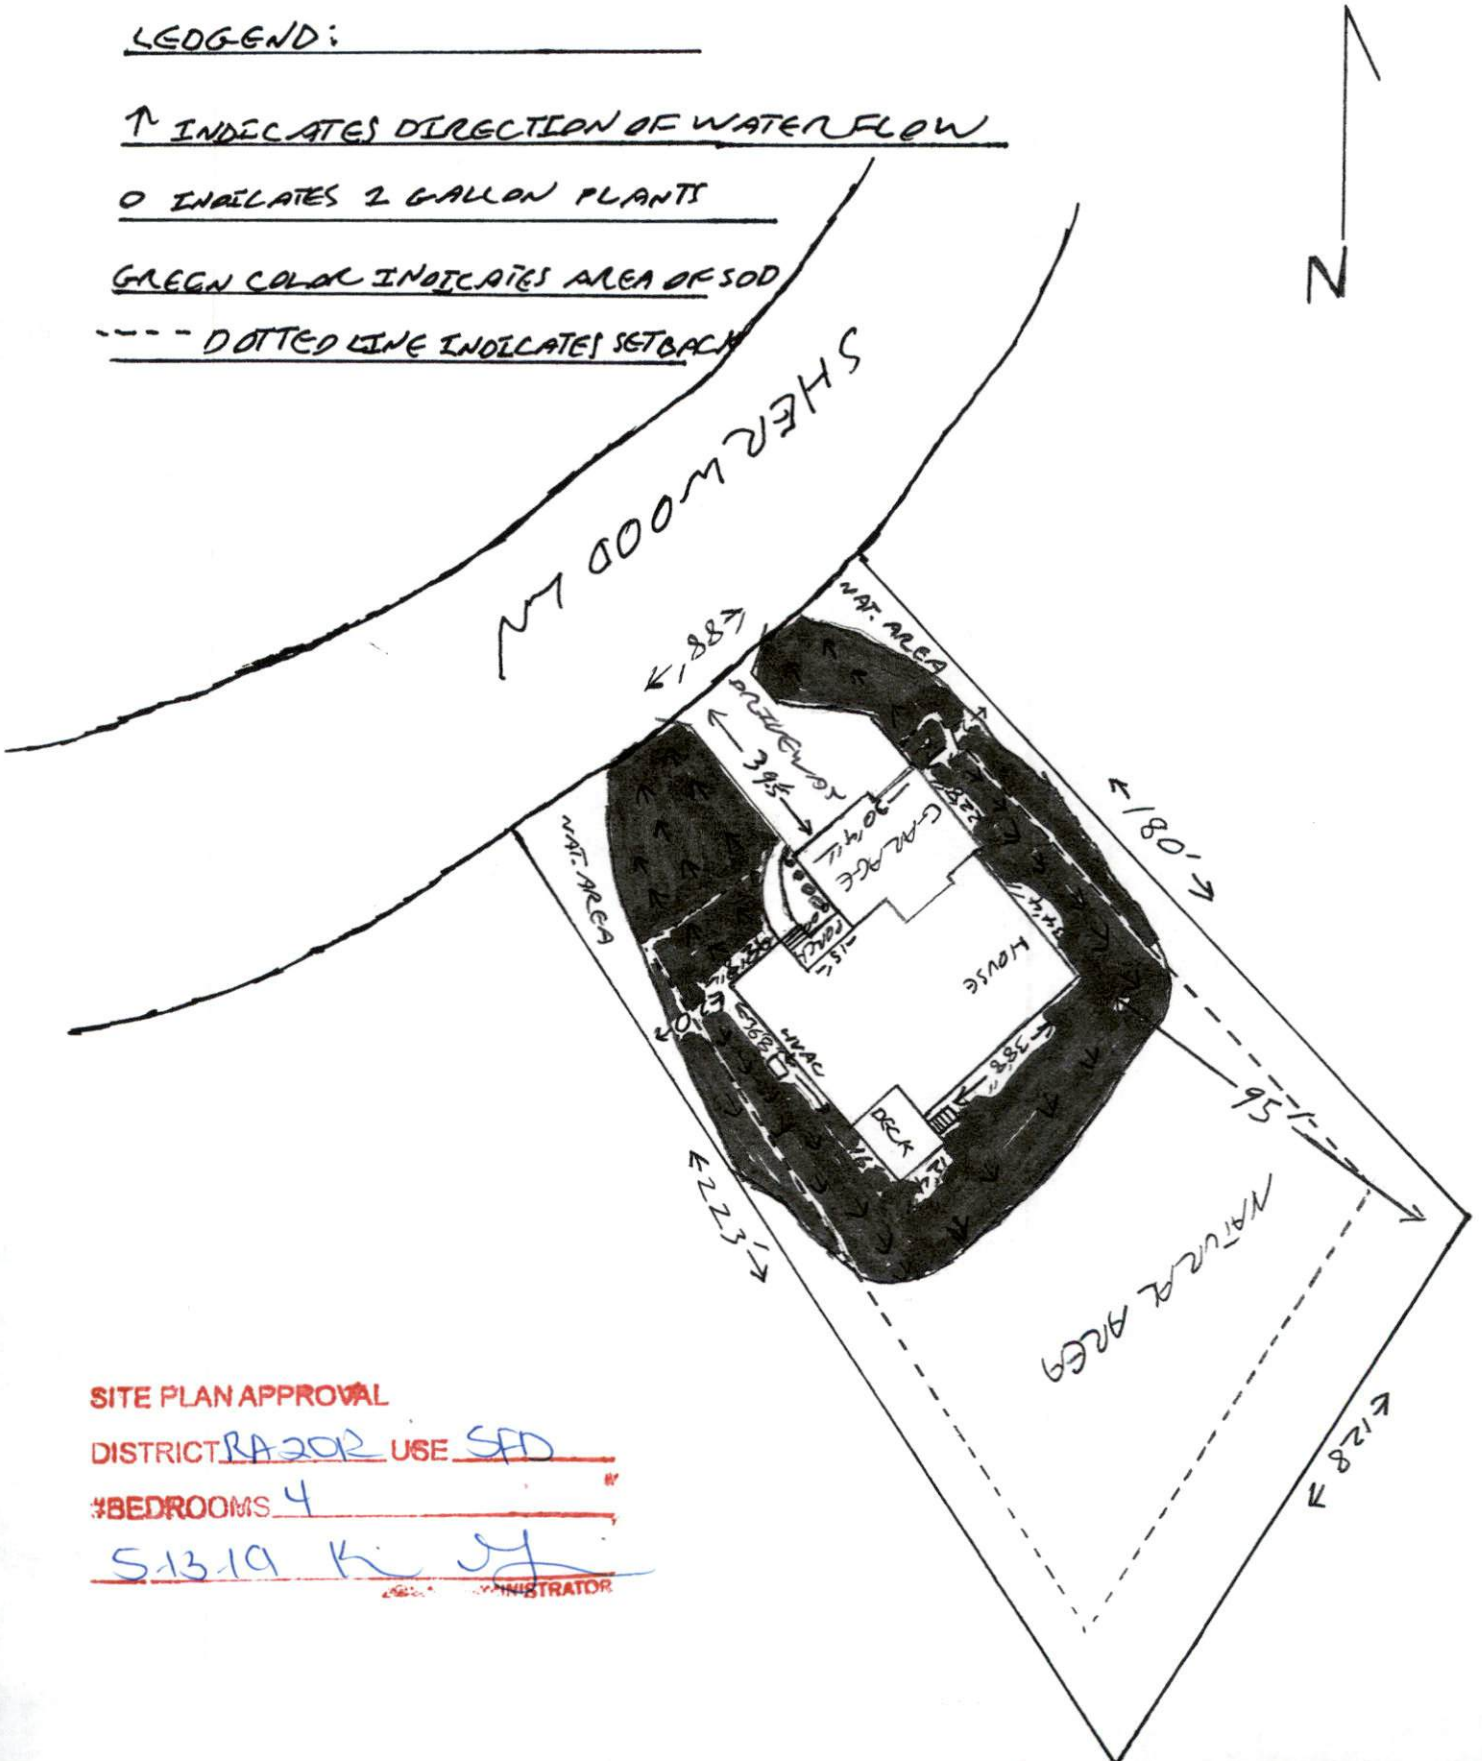 LEDGEND:
↑ INDICATES DIRECTION OF WATER FLOW
O INDICATES 1 GALLON PLANTS
GREEN COLOR INDICATES AREA OF SOD
---- DOTTED LINE INDICATES SETBACK
N
SHERWOOD LN
←88'→
NAT. AREA
DRIVEWAY
←39'5"→
GARAGE
20'4"
←180'→
NAT. AREA
PORCH
HOUSE
HVAC
←38'8"→
DECK
12'
95'
←223'→
NATURAL AREA
←128'→
SITE PLAN APPROVAL
DISTRICT RA20R USE SFD
#BEDROOMS 4
5-13-19